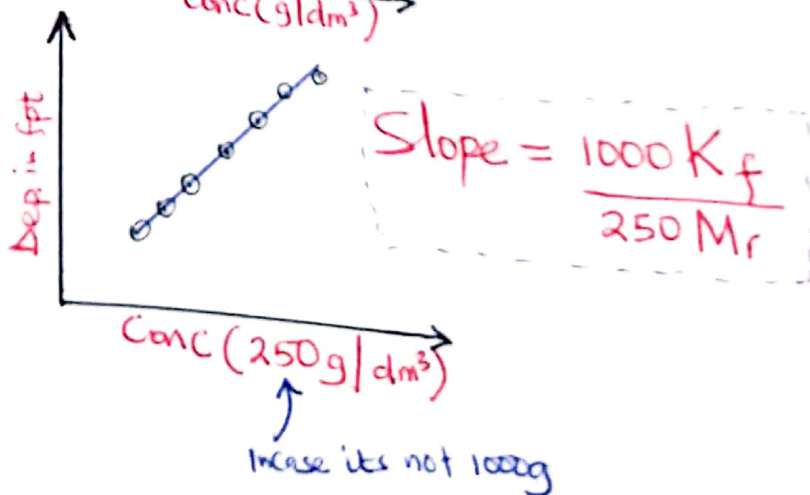 Conc (g/dm³)
Dep. in fpt
Slope = 1000 Kf
250 Mr
Conc (250g/dm³)
Incase its not 1000g